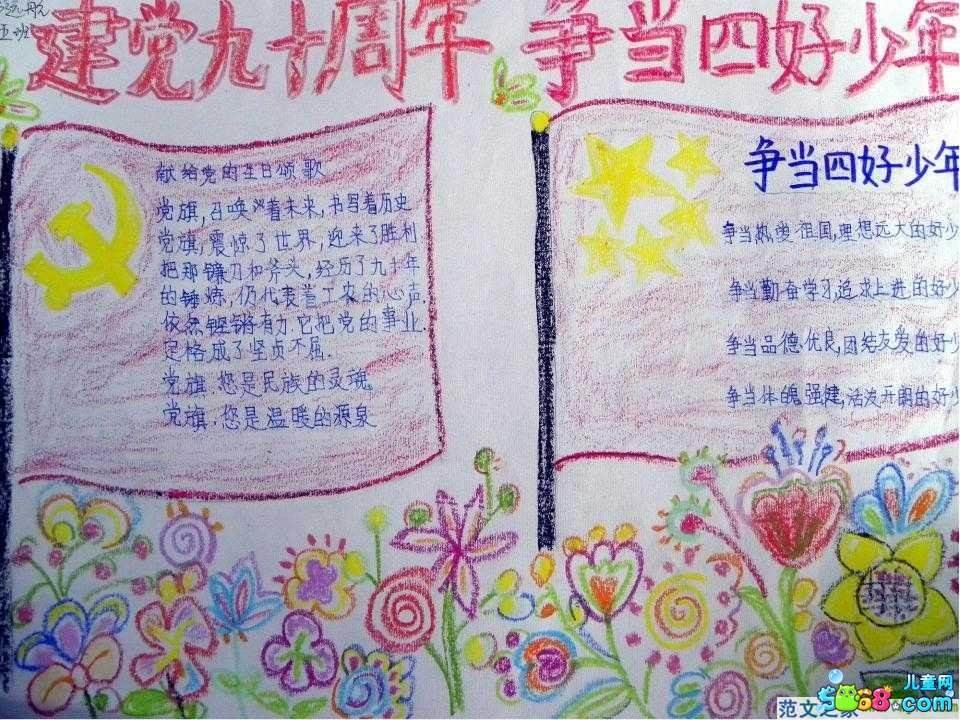 远航
五班
建党九十周年 争当四好少年
献给党的生日颂歌
党旗,召唤着未来,书写着历史
党旗,震惊了世界,迎来了胜利
把那镰刀和斧头,经历了九十年
的锤炼,仍代表着工农的心声.
依然铿锵有力.它把党的事业.
定格成了坚贞不屈.
党旗.您是民族的灵魂
党旗.您是温暖的源泉
争当四好少年
争当热爱祖国,理想远大的好少
争当勤奋学习追求上进的好少
争当品德优良,团结友爱的好少
争当体魄强健,活泼开朗的好少
儿童网
3068.com